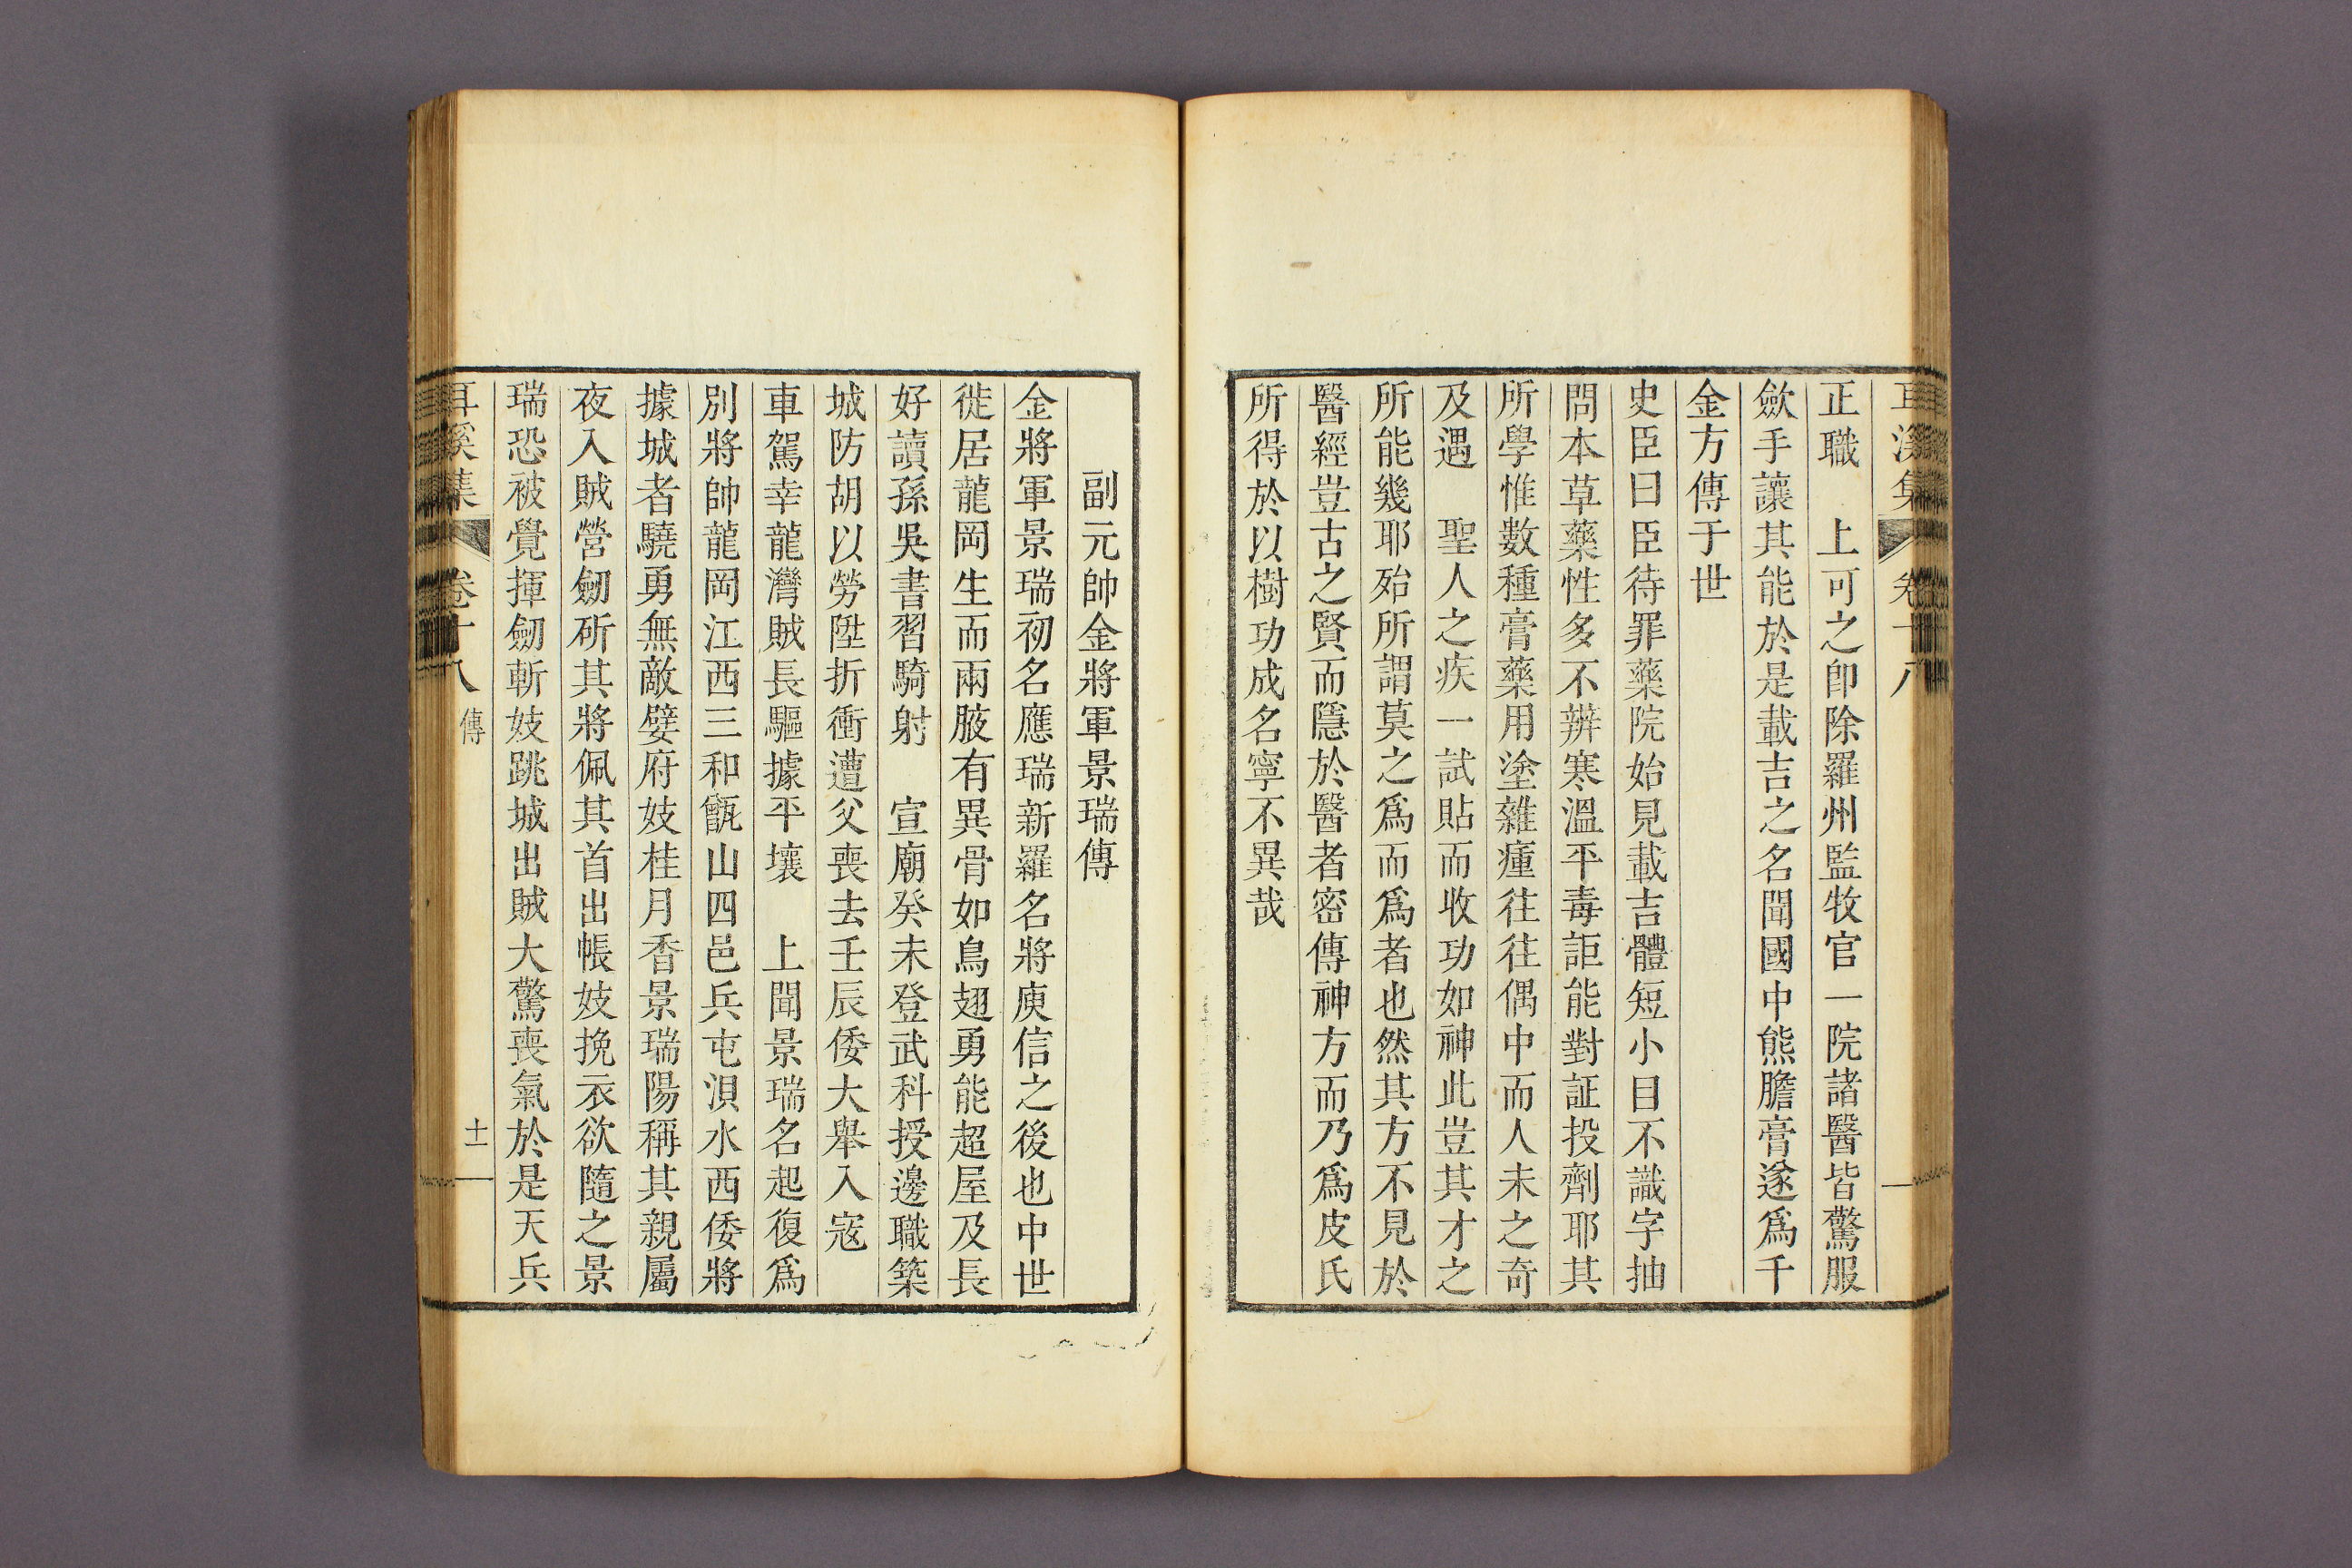 耳溪集 卷十八
正職 上可之卽除羅州監牧官一院諸醫皆驚服
歛手讓其能於是載吉之名聞國中熊膽膏遂爲千
金方傳于世
史臣曰臣待罪藥院始見載吉體短小目不識字抽
問本草藥性多不辨寒溫平毒詎能對証投劑耶其
所學惟數種膏藥用塗雜瘇往往偶中而人未之奇
及遇 聖人之疾一試貼而收功如神此豈其才之
所能幾耶殆所謂莫之爲而爲者也然其方不見於
醫經豈古之賢而隱於醫者密傳神方而乃爲皮氏
所得於以樹功成名寧不異哉
副元帥金將軍景瑞傳
金將軍景瑞初名應瑞新羅名將庾信之後也中世
徙居龍岡生而兩腋有異骨如鳥翅勇能超屋及長
好讀孫吳書習騎射 宣廟癸未登武科授邊職築
城防胡以勞陞折衝遭父喪去壬辰倭大擧入寇
車駕幸龍灣賊長驅據平壤 上聞景瑞名起復爲
別將帥龍岡江西三和甑山四邑兵屯浿水西倭將
據城者驍勇無敵嬖府妓桂月香景瑞陽稱其親屬
夜入賊營劒斫其將佩其首出帳妓挽衣欲隨之景
瑞恐被覺揮劒斬妓跳城出賊大驚喪氣於是天兵
耳溪集 卷十八 傳 十一